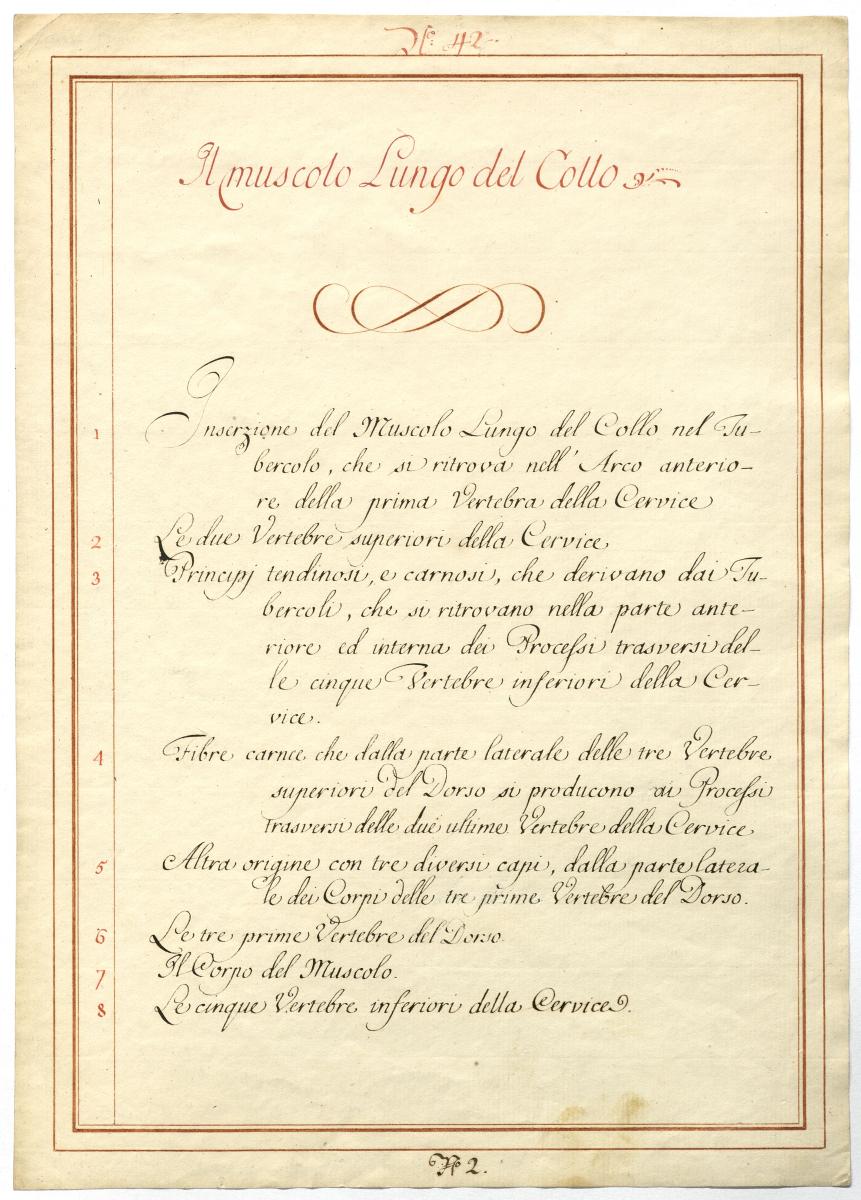 N.º 42.
Il muscolo Lungo del Collo
1 Inserzione del Muscolo Lungo del Collo nel Tu-
bercolo, che si ritrova nell' Arco anterio-
re della prima Vertebra della Cervice
2 Le due Vertebre superiori della Cervice
3 Principj tendinosi, e carnosi, che derivano dai Tu-
bercoli, che si ritrovano nella parte ante-
riore ed interna dei Processi trasversi del-
le cinque Vertebre inferiori della Cer-
vice.
4 Fibre carnee che dalla parte laterale delle tre Vertebre
superiori del Dorso si producono ai Processi
trasversi delle due ultime Vertebre della Cervice
5 Altra origine con tre diversi capi, dalla parte latera-
le dei Corpi delle tre prime Vertebre del Dorso.
6 Le tre prime Vertebre del Dorso.
7 Il Corpo del Muscolo.
8 Le cinque Vertebre inferiori della Cervice.
Nº 2.